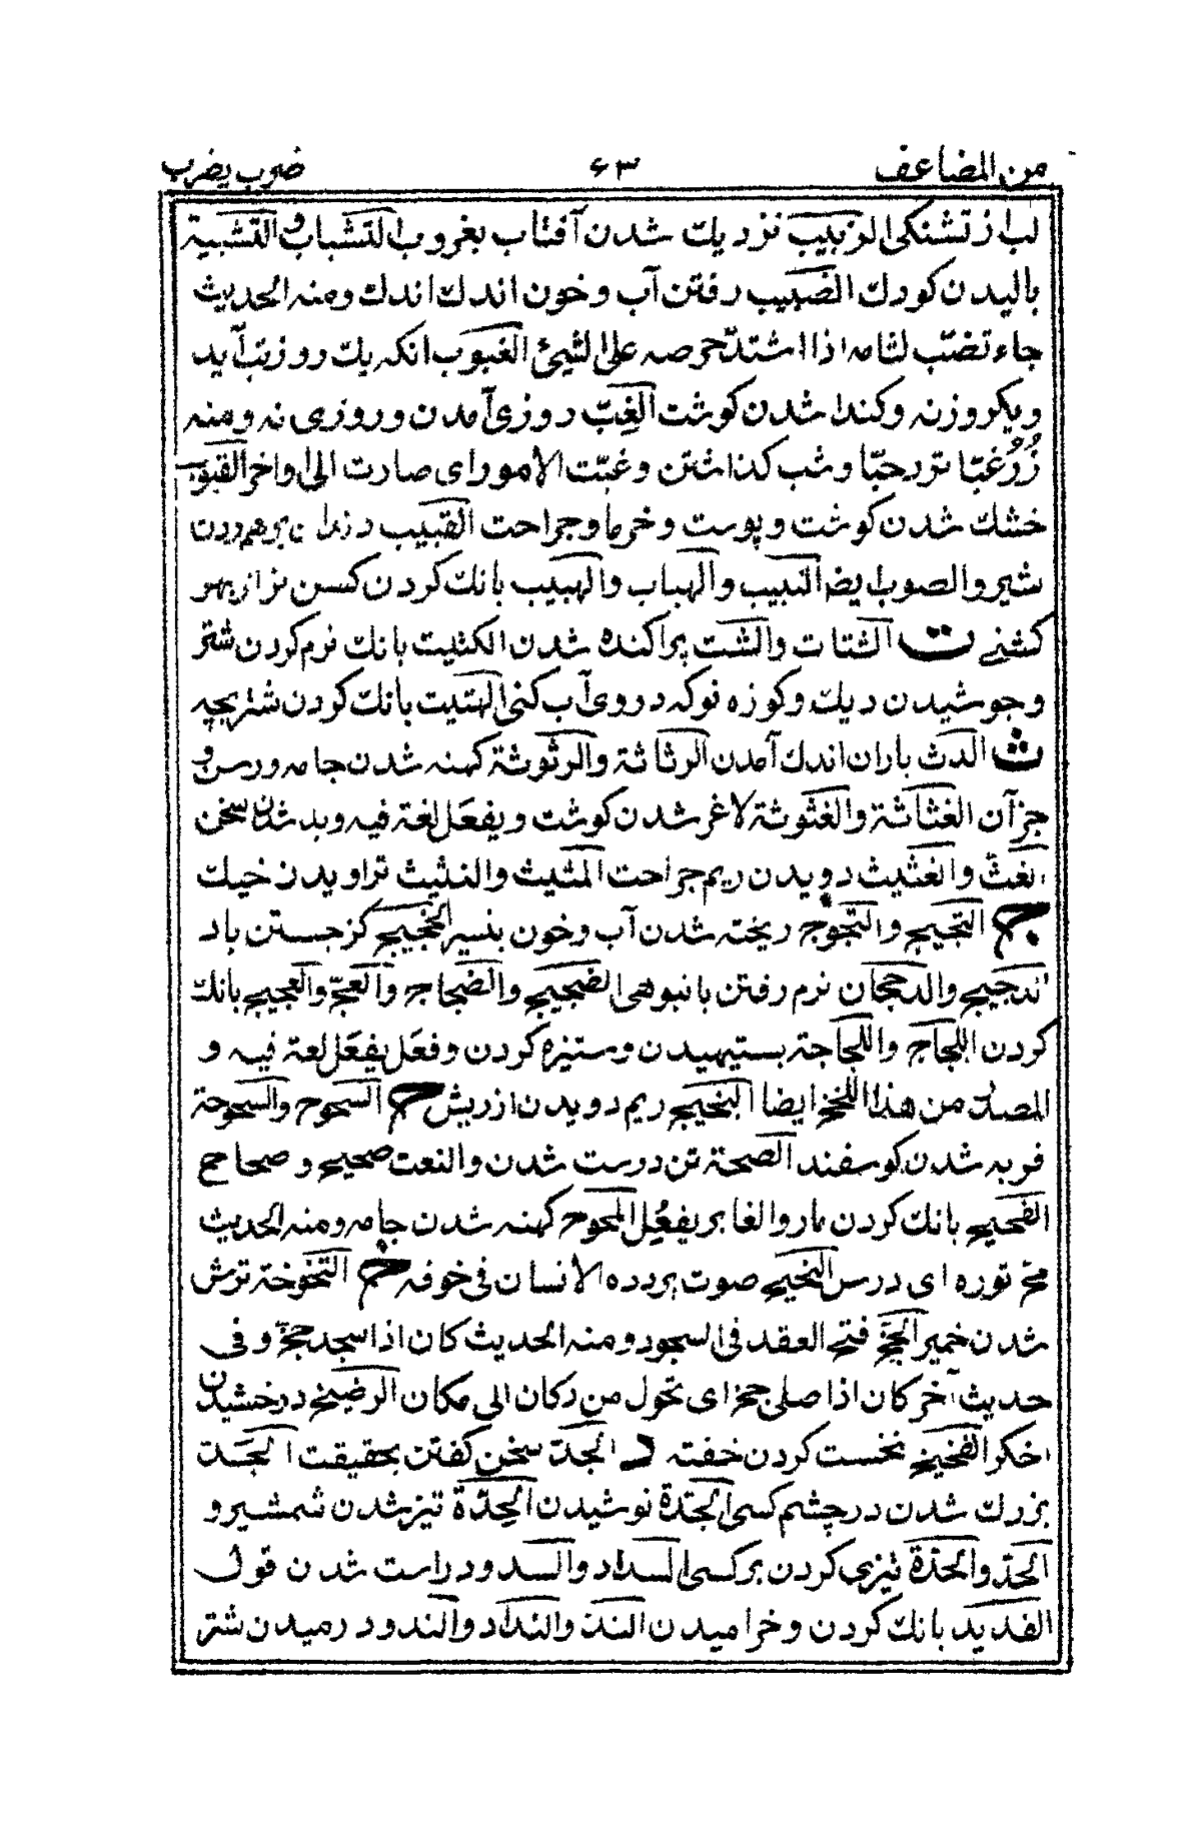 من المضاعف ۶۳ ضرب يضرب
لب از تشنكى الزبيب نزديك شدن آفتاب بغروب التشباب والتشبيبة
باليدن كودك الضبيب رفتن آب وخون اندك اندك ومنه الحديث
جاء تضبّ لثامه اذا اشتدّ حرصه على الشيئ الغبوب انكه يك روز تب آيد
ويكروز نه وكندا شدن كوشت الغِبّ روزى آمدن وروزى نه ومنه
زُرْغبّا تزدد حبّا وشب كذاشتن وغبّت الامور اى صارت الى اواخر القبوب
خشك شدن كوشت وپوست وخرما وجراحت القبيب دندان برهم زدن
شير والصوب ايضا النبيب والهباب والهبيب بانك كردن كسن نر از بهر
كشنى ت الشتات والشت پراكنده شدن الكتيت بانك نرم كردن شتر
وجوشيدن ديك وكوزه نو كه در وى آب كنى الهتيت بانك كردن شتربچه
ث الدث باران اندك آمدن الرثاثة والرثوثة كهنه شدن جامه ورسن و
جزآن الغثاثة والغثوثة لاغر شدن كوشت ويفعَل لغة فيه وبد شدن سخن
الغثّ والغثيث دويدن ريم جراحت المثيث والنثيث تراويدن خيك
ج الثجيج والثجوج ريخته شدن آب وخون بسير الخجيج كژ جستن باد
الدجيج والدججان نرم رفتن بانبوهى الضجيج والضجاج والعجّ والعجيج بانك
كردن اللجاج واللجاجة بستيهيدن وستيزه كردن وفعَل يفعَل لغة فيه و
المصدر من هذا اللجج ايضا النجيج ريم دويدن از ريش ح السحوح والسحوحة
فربه شدن كوسفند الصحة تن درست شدن والنعت صحيح وصحاح
الفحيح بانك كردن مار والغابر يفعُل المحوح كهنه شدن جامه ومنه الحديث
مح نوره اى درس النحيح صوت يردده الانسان فى جوفه خ التخوخة ترش
شدن خمير الجخ فتح العقد فى السجود ومنه الحديث كان اذا سجد جخّ وفى
حديث آخر كان اذا صلى جخ اى تحول من مكان الى مكان الرضيخ درخشيدن
اخكر الفخيخ نخست كردن خفته د الجدّ سخن كفتن بحقيقت الجَدّ
بزرك شدن در چشم كسى الجِدّة نو شدن الحِدّة تيز شدن شمشير و
الحدّ والحدّة تيزى كردن بر كسى السداد والسدود راست شدن قول
الفديد بانك كردن وخراميدن الندّ والنداد والندود رميدن شتر